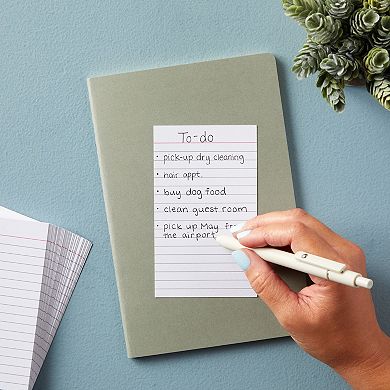 To-do
• pick-up dry cleaning
• hair appt.
• buy dog food
• clean guest room
• pick up May from
me airport